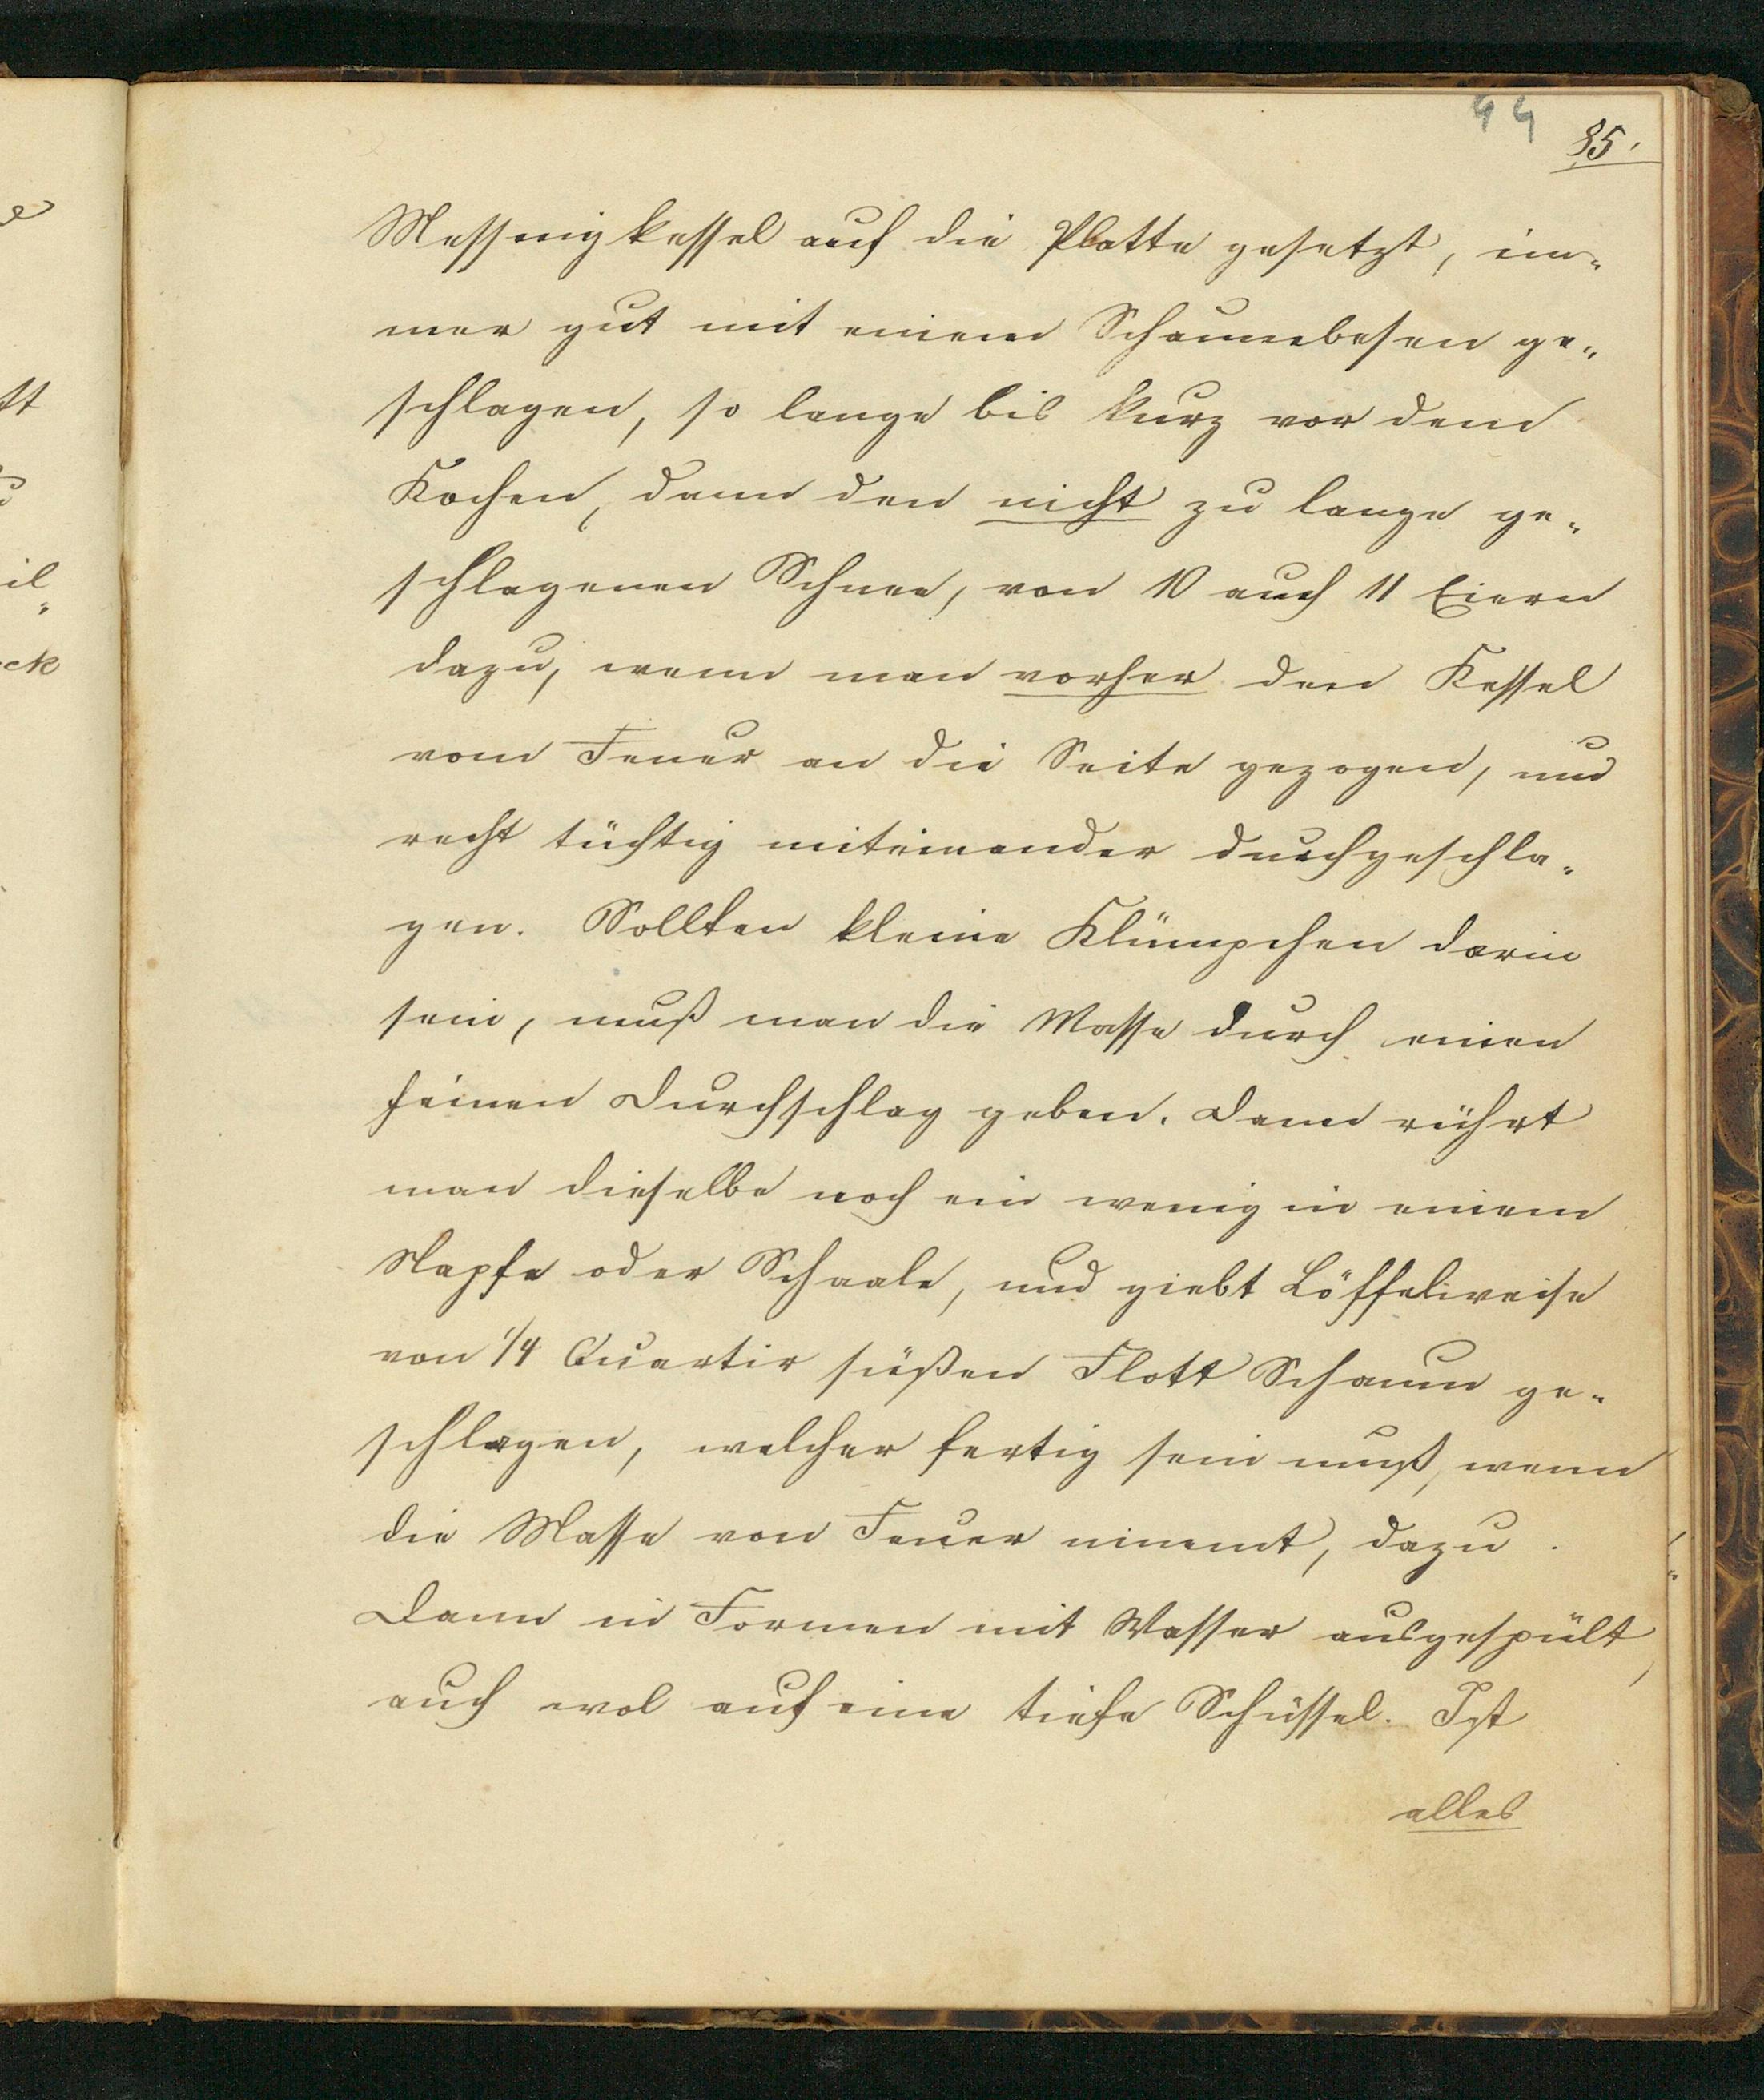 44
85.
Messingkessel auf die Platte gesetzt, im-
mer gut mit einem Schaumbesen ge-
schlagen, so lange bis kurz vor dem
Kochen, dann den nicht zu lange ge-
schlagenen Schnee, von 10 auch 11 Eiern
dazu, wenn man vorher den Kessel
vom Feuer an die Seite gezogen, und
recht tüchtig miteinander durchgeschla-
gen. Sollten kleine Klümpchen darin
sein, muß man die Masse durch einen
feinen Durchschlag geben. Dann rührt
man dieselbe noch ein wenig in einem
Napfe oder Schaale, und giebt Löffelweise
von 1/4 Quartir süßen Flott Schaum ge-
schlagen, welcher fertig sein muß, wenn
die Masse von Feuer nimmt, dazu.
Dann in Formen mit Wasser ausgespült,
auch wol auf eine tiefe Schüssel. Ist
alles